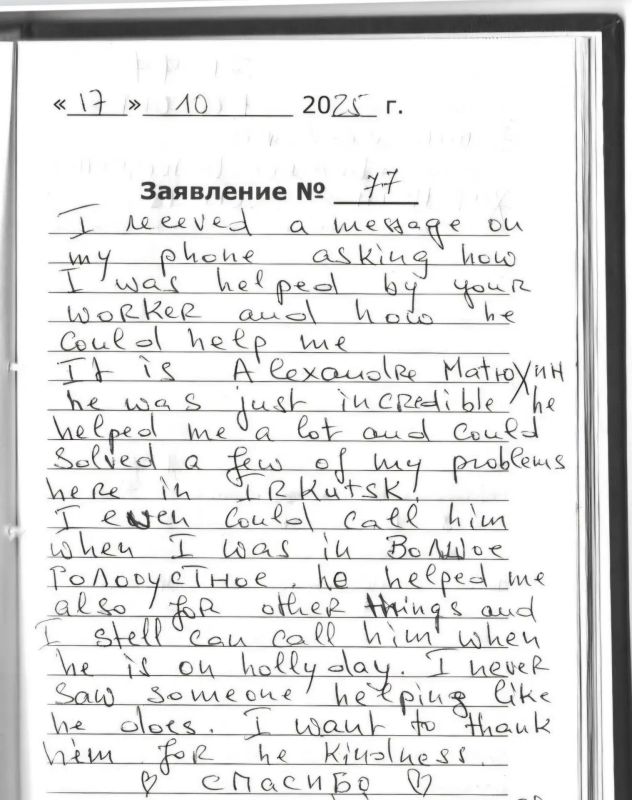 «17» 10 2025 г.
Заявление № 77
I receved a message on
my phone asking how
I was helped by your
worker and how he
could help me
It is Alexandre Матюхин
he was just incredible he
helped me a lot and could
solved a few of my problems
here in IRKutsk!
I even could call him
when I was in Большое
Голоустное. he helped me
also for other things and
I stell can call him when
he is on hollyday. I never
saw someone helping like
he does. I want to thank
him for he kindness.
♡ спасибо ♡